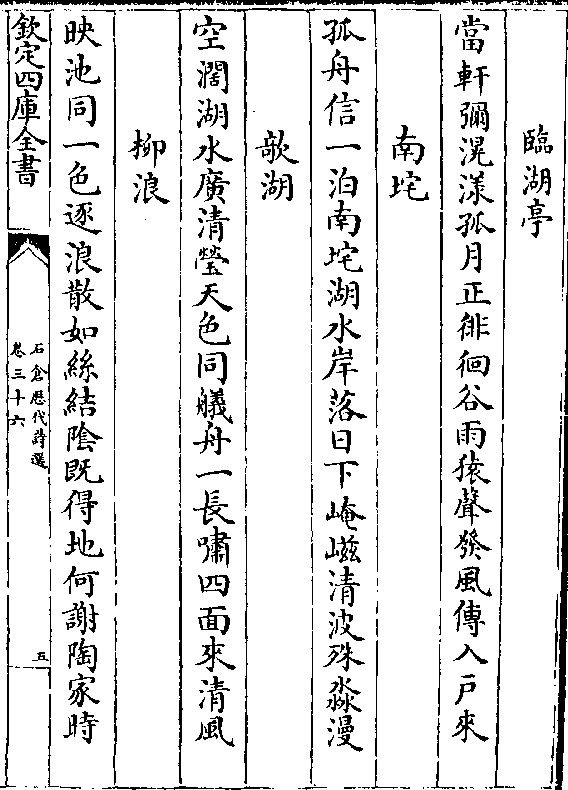 臨湖亭
當軒彌滉漾孤月正徘徊谷雨猿聲發風傳入戸來
南垞
孤舟信一泊南垞湖水岸落日下崦嵫清波殊淼漫
欹湖
空濶湖水廣清瑩天色同艤舟一長嘯四面來清風
柳浪
映池同一色逐浪散如絲結陰既得地何謝陶家時
欽定四庫全書
石倉歴代詩選
卷三十六
五